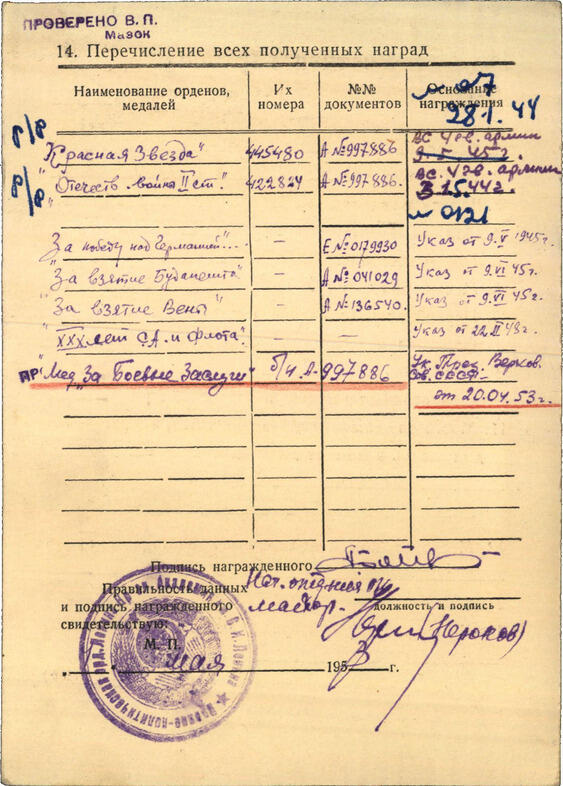 ПРОВЕРЕНО В. П.
Мазок
14. Перечисление всех полученных наград
Наименование орденов, медалей
Их номера
№№ документов
Основание награждения
28.1.44
р/р "Красная Звезда" 445480 А №997886 ВС 4 гв. армии 9.I.45г.
р/р "Отечеств. война II ст." 422824 А №997886. ВС. 4 гв. армии 3.1.44г.
№ 0121
"За победу над Германией"... — Е №0179930 Указ от 9.V.1945г.
"За взятие Будапешта" — А №041029 Указ от 9.VI.45г.
"За взятие Вены" — А №136540. Указ от 9.VI.45г.
"XXX лет С.А. и Флота". — — Указ от 22.II.48г.
ПР "Мед. "За Боевые Заслуги" б/н А-997886 Ук. През. Верхов.
Св. СССР
от 20.04.53г.
Подпись награжденного
Правильность данных
и подпись награжденного
свидетельствую:
Нач. отделения
майор.
должность и подпись
М. П.
мая 1953 г.